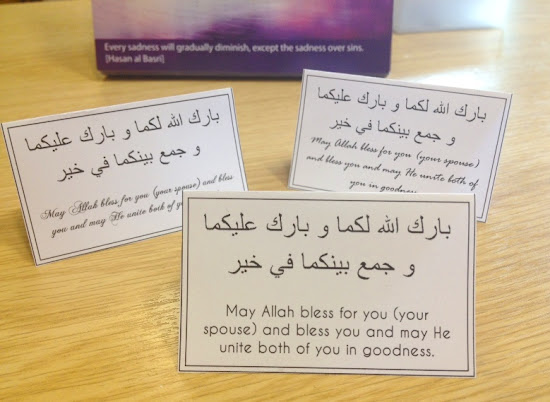 Every sadness will gradually diminish, except the sadness over sins.
[Hasan al Basri]
بارك الله لكما و بارك عليكما
و جمع بينكما في خير
May Allah bless for you (your spouse) and bless
you and may He unite both of
بارك الله لكما و بارك عليكما
و جمع بينكما في خير
May Allah bless for you (your spouse)
and bless you and may He unite both of
you in goodness.
بارك الله لكما و بارك عليكما
و جمع بينكما في خير
May Allah bless for you (your
spouse) and bless you and may He
unite both of you in goodness.